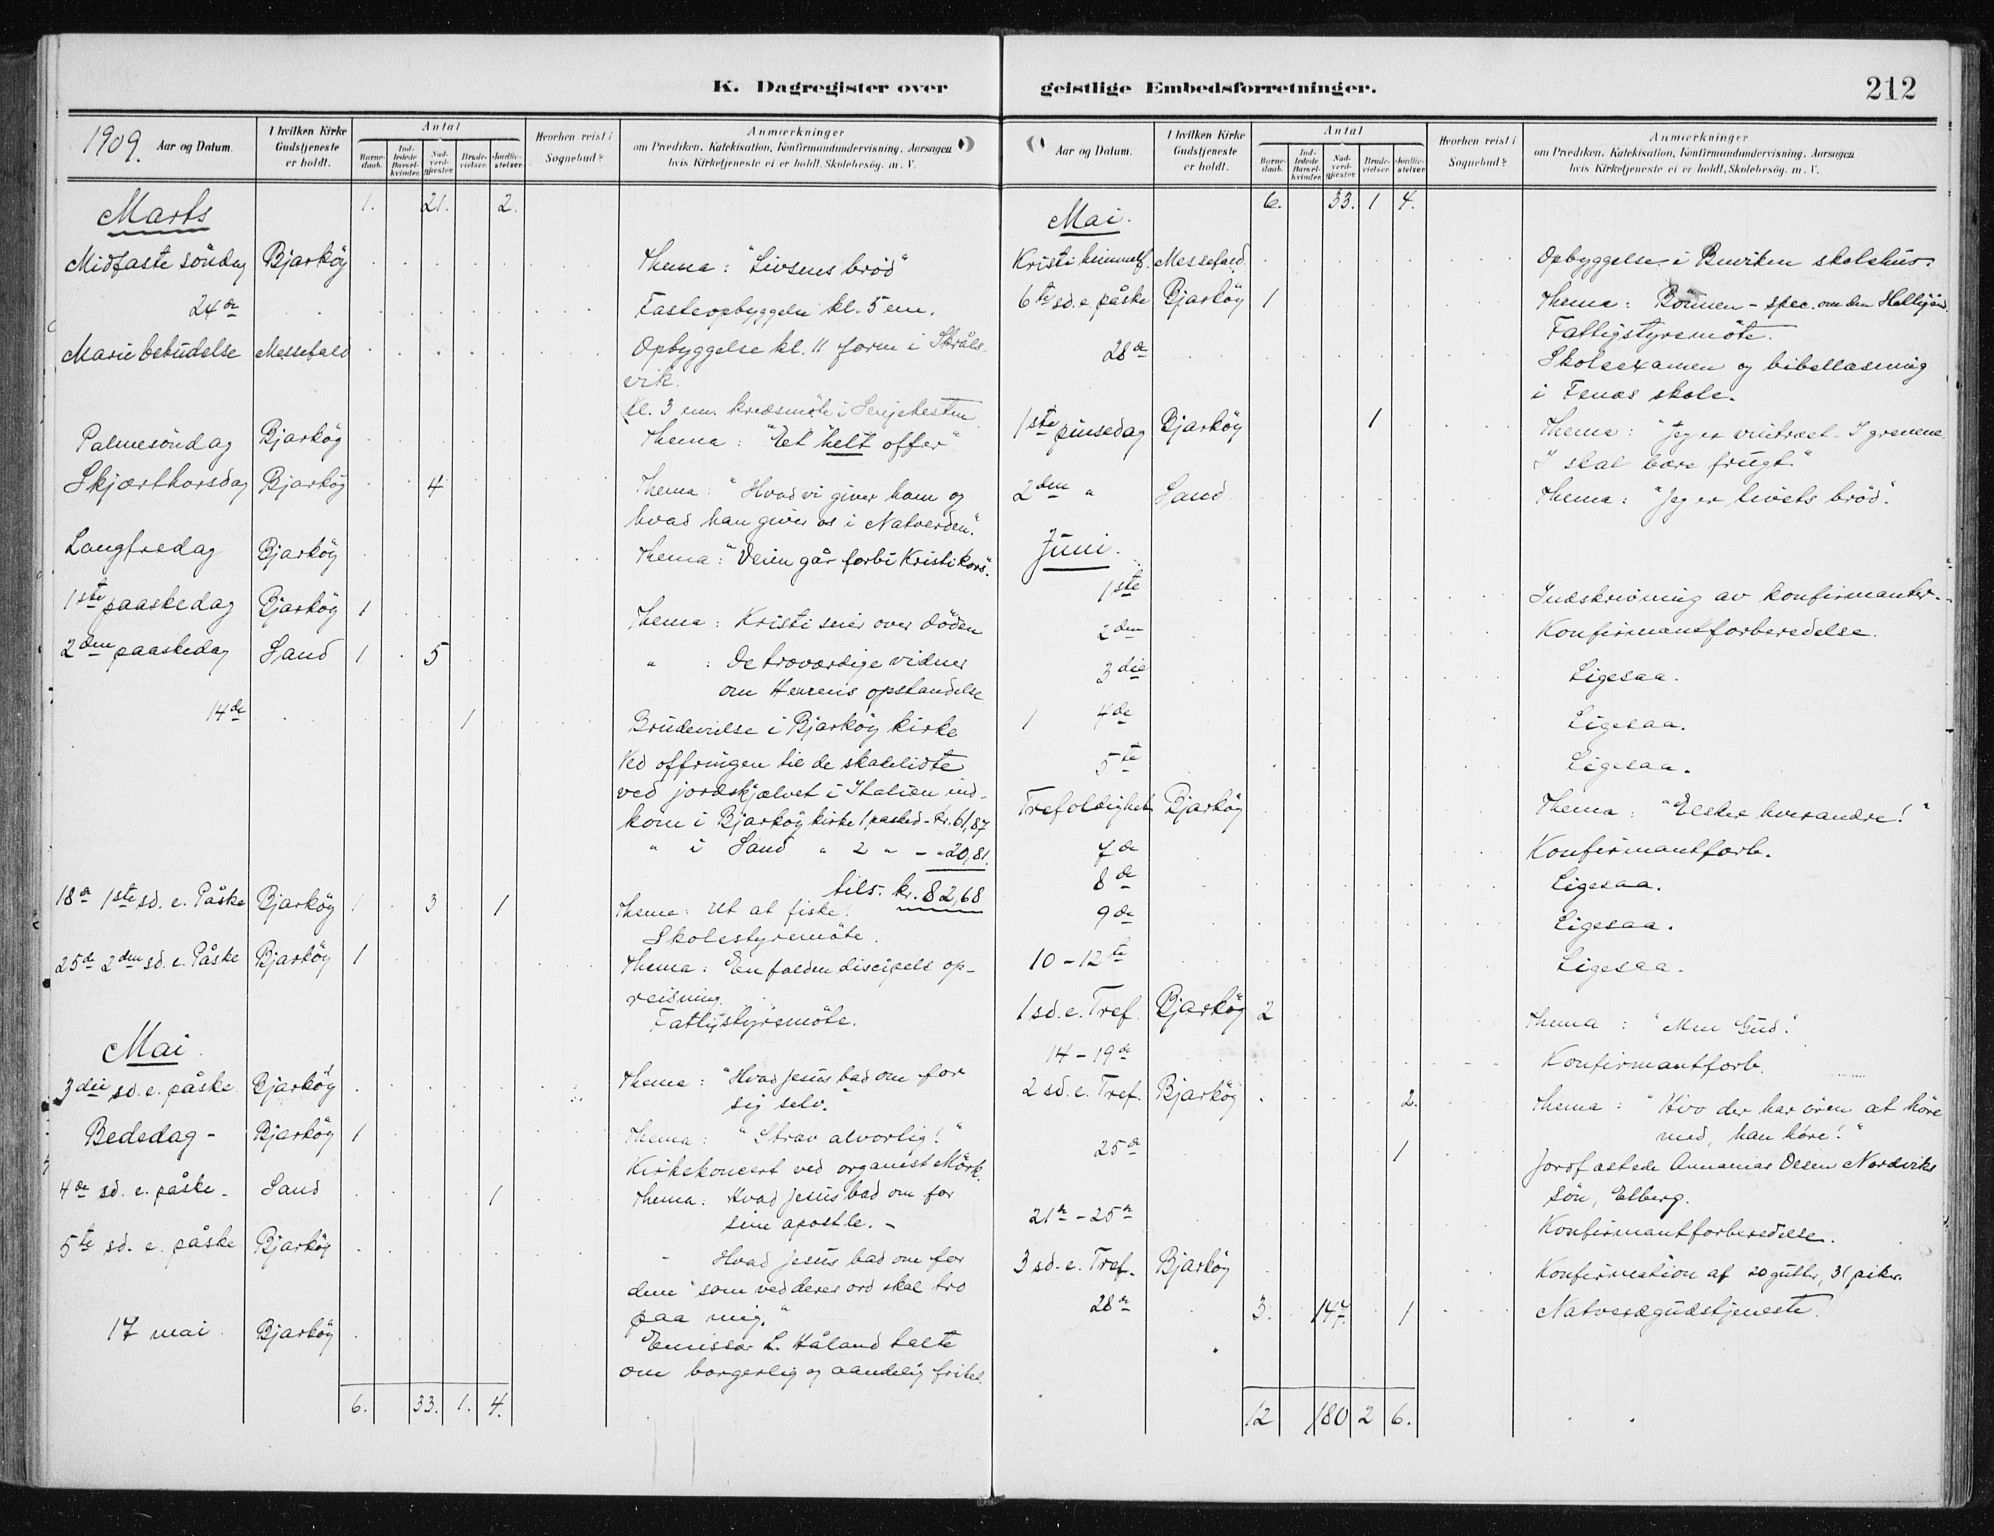 K. Dagregister over
1909. Aar og Datum.
I hvilken Kirke Gudstjeneste er holdt.
Antal
Barne-daab.
Ind-ledede Barsel-kvinder.
Nad-verd-gjæster.
Brude-vielser.
Jordfæ-stelser.
Hvorhen reist i Sognebud?
Anmærkninger
om Prædiken, Katekisation, Konfirmandundervisning, Aarsagen
hvis Kirketjeneste ei er holdt, Skolebesøg. m. V.
Marts 1. 21. 2.
Midfaste söndag Bjarköy Thema: "Livsens bröd"
24de Fasteopbyggelse kl. 5 em.
Marie bebudelse Messefald Opbyggelse kl. 11 form i Skråls-
vik.
Kl. 3 em. kredsmöte i Senjehesten
Palmesöndag Bjarköy Thema: "Et helt offer"
Skjærthorsdag Bjarköy 4 Thema: "Hvad vi giver ham og
hvad han giver os i Natverden".
Langfredag Bjarköy Thema: "Veien går forbi Kristi kors".
1ste paaskedag Bjarköy 1 Thema: Kristi seier over döden
2den paaskedag Sand 1 5 " : De troværdige vidner
om Herrens opstandelse
14de 1 Brudevielse i Bjarköy kirke
Ved offringen til de skadelidte
ved jordskjælvet i Italien ind-
kom i Bjarköy kirke 1 paasked - kr. 61,87
" i Sand " 2 " - " 20,81.
tils. kr. 82,68
18de 1ste sd. e. Påske Bjarköy 1 3 1 Thema: Ut at fiske!
Skolestyremöte.
25de 2den sd. e. Påske Bjarköy 1 Thema: En falden discipels op-
reisning.
Fattigstyremöte.
Mai.
3die sd. e. påske Bjarköy Thema: "Hvad Jesus bad om for
sig selv."
Bededag - Bjarköy 1 Thema: "Strav alvorlig!"
Kirkekoncert ved organist Mörk.
4de sd. e. påske - Sand 1 Thema: Hvad Jesus bad om for
sine apostle. -
5te sd. e. påske Bjarköy " Hvad Jesus bad om for
dem "som ved deres ord skal tro
paa mig."
17 mai Bjarköy Emissær L. Håland talte
om borgerlig og aandelig frihet.
6. 33. 1. 4.
geistlige Embedsforretninger.
212
Aar og Datum.
I hvilken Kirke Gudstjeneste er holdt.
Antal
Barne-daab.
Ind-ledede Barsel-kvinder.
Nad-verd-gjæster.
Brude-vielser.
Jordfæ-stelser.
Hvorhen reist i Sognebud?
Anmærkninger
om Prædiken, Katekisation, Konfirmandundervisning, Aarsagen
hvis Kirketjeneste ei er holdt, Skolebesøg. m. V.
Mai. 6. 33. 1 4.
Kristi himmelf. Messefald. Opbyggelse i skolehus.
6te sd. e. påske Bjarköy 1 Thema: Bönnen - spec. om den Helligånd.
Fattigstyremöte.
28de Skoleexamen og bibellæsning
i Fenes skole.
1ste pinsedag Bjarköy 1 Thema: "Jeg er vintræet - I grenene
I skal bære frugt."
2den " Sand Thema: "Jeg er livets bröd".
Juni.
1ste Indskrivning av konfirmanter.
2den Konfirmantforberedelse.
3die Ligesaa.
1 4de Ligesaa.
5te Ligesaa.
Trefoldighet Bjarköy Thema: "Elsker hverandre!"
7de Konfirmantforb.
8de Ligesaa.
9de Ligesaa.
10-12te Ligesaa.
1 sd. e. Tref. Bjarköy 2 Thema: "Min Gud".
14-19de Konfirmantforb.
2 sd. e. Tref. Bjarköy 2. Thema: "Hvo der har ören at höre
med, han höre!"
25de 1 Jordfæstede Annanias Olsen Nordviks
sön, Elberg.
21de-25de Konfirmantforberedelse.
3 sd. e. Tref. Bjarköy Konfirmation af 20 gutter, 31 piker.
28de 3. 147. 1 Natverdgudstjeneste.
12 180 2 6.